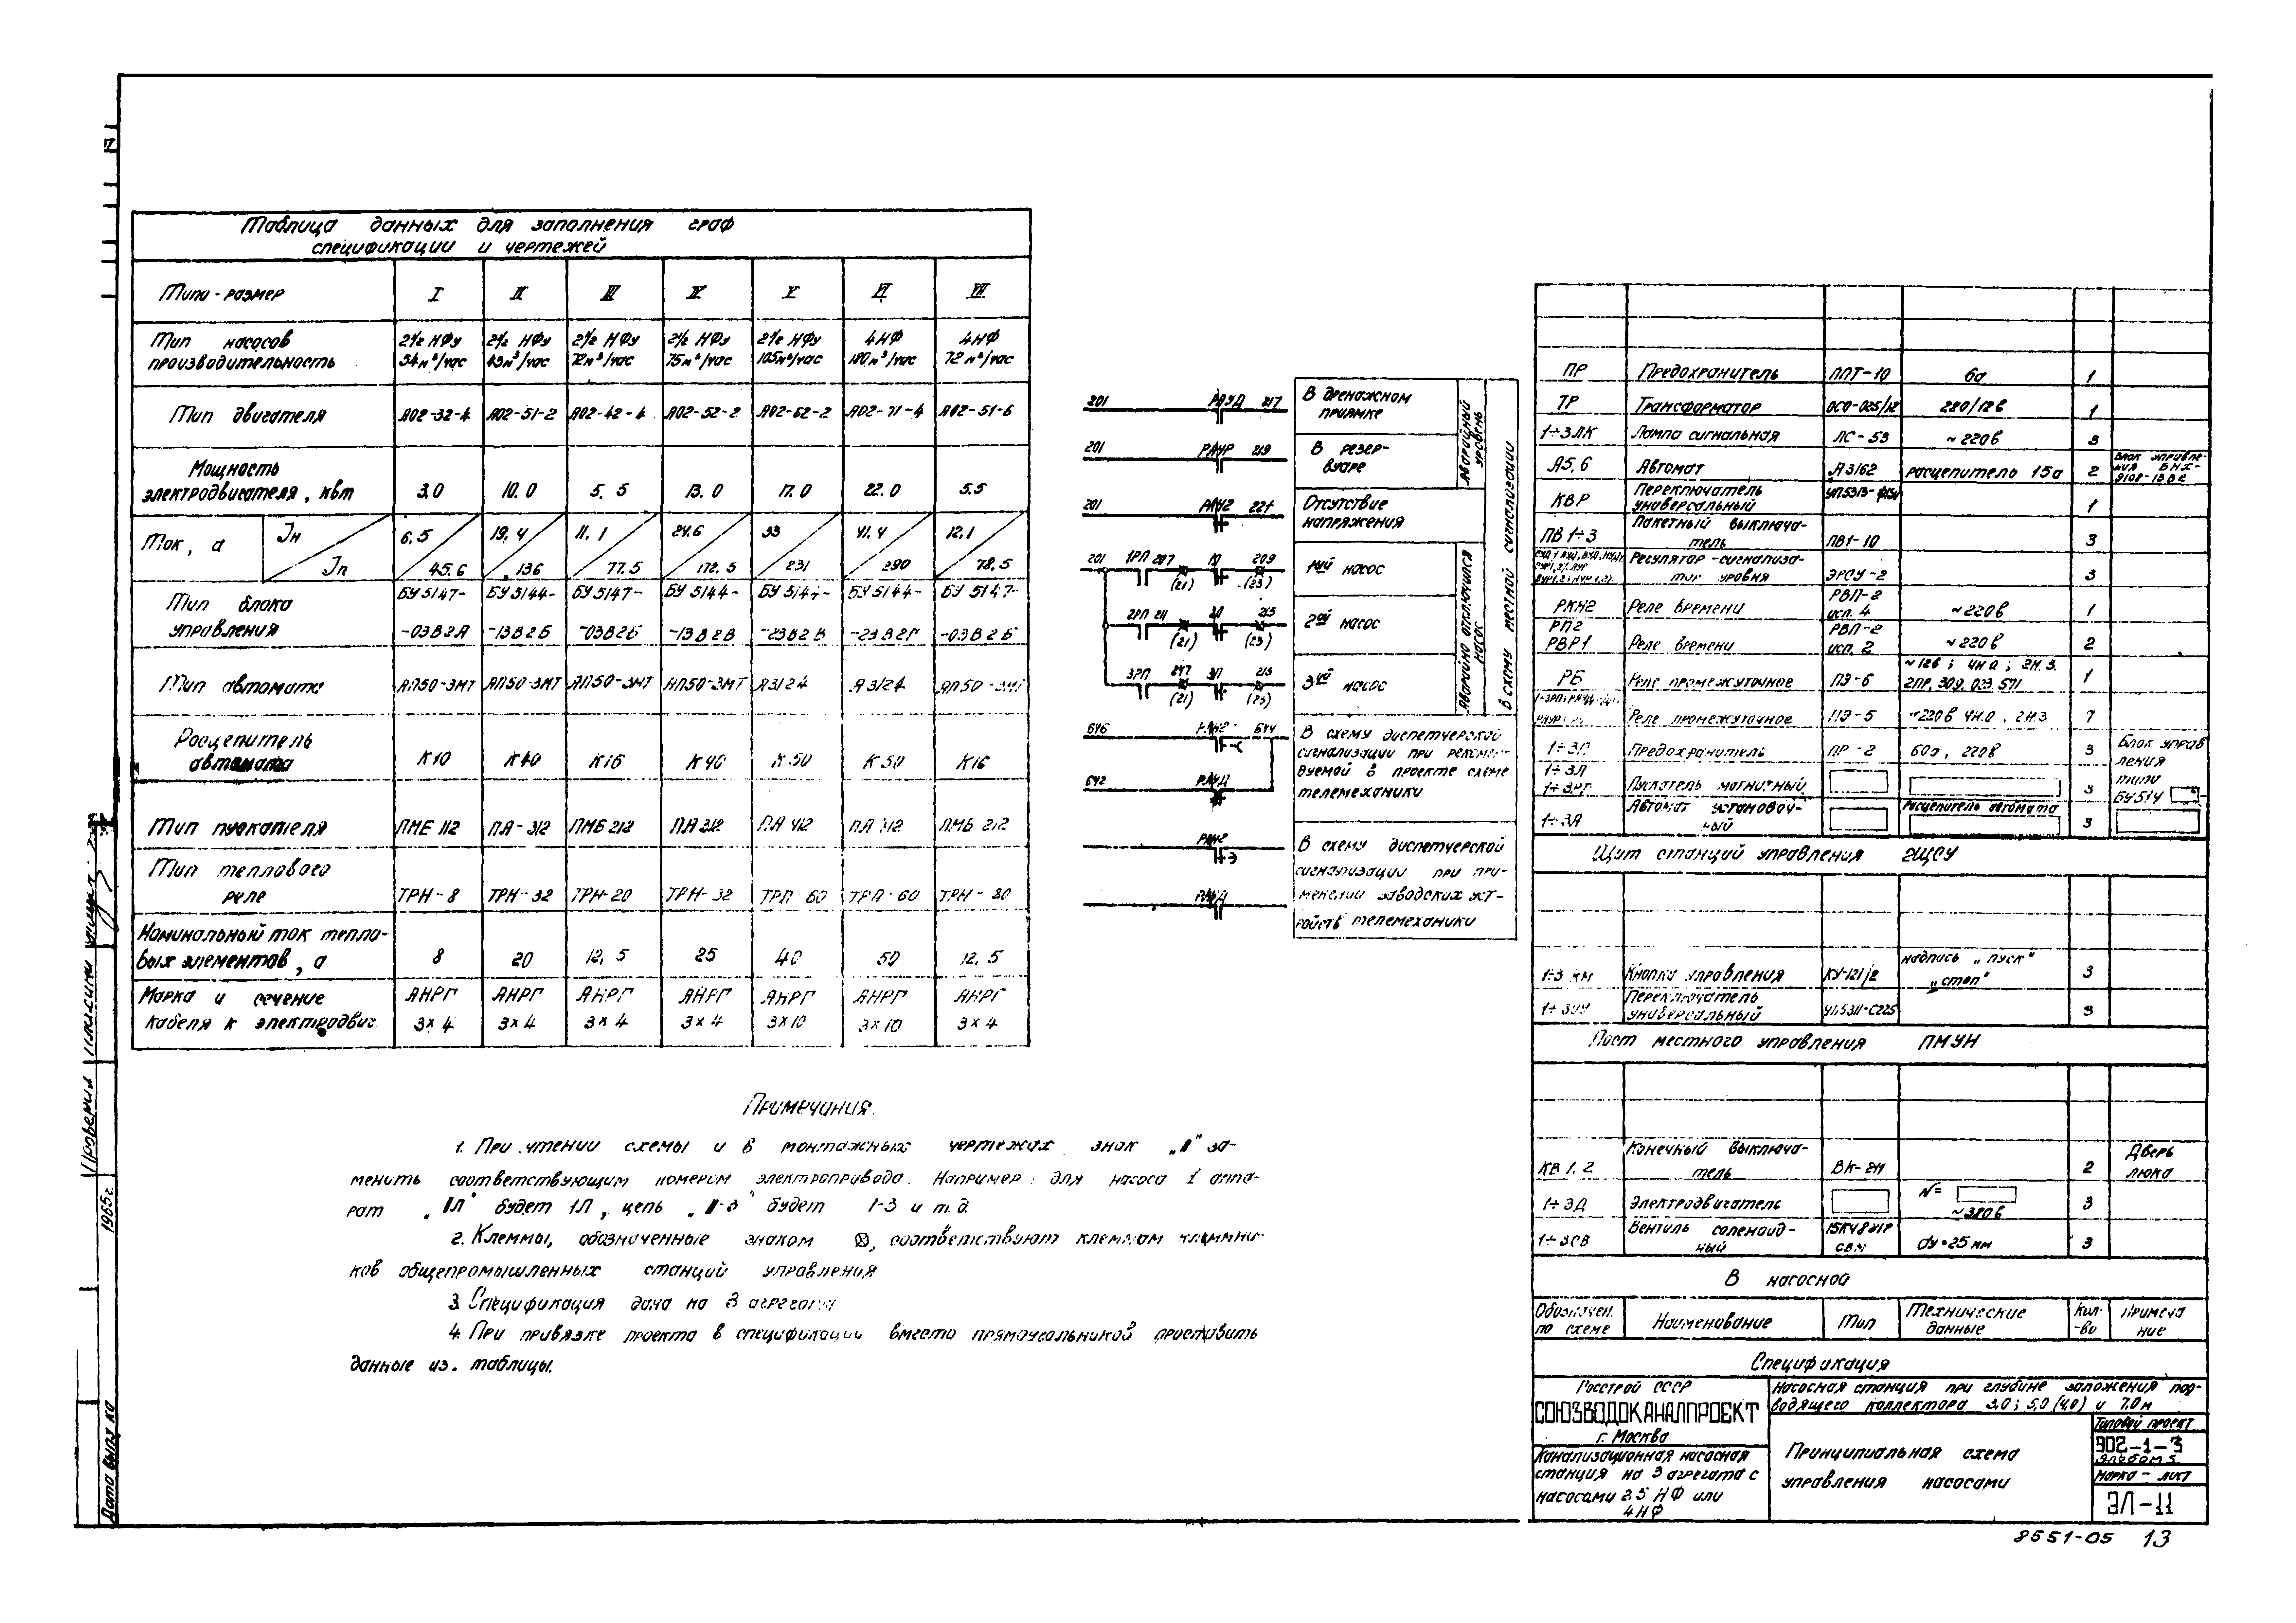 Таблица данных для заполнения граф
спецификации и чертежей
Типо-размер I II III IV V VI VII
Тип насосов 2½ НФу 2½ НФу 2½ НФу 2½ НФу 2½ НФу 4НФ 4НФ
производительность 54м³/час 43м³/час 72м³/час 75м³/час 105м³/час 180м³/час 72м³/час
Тип двигателя АО2-32-4 АО2-51-2 АО2-42-4 АО2-52-2 АО2-62-2 АО2-71-4 АО2-51-6
Мощность
электродвигателя, квт 3.0 10.0 5.5 13.0 17.0 22.0 5.5
Ток, а Iн 6.5 19.4 11.1 24.6 33 41.4 12,1
Iп 45.6 136 77.5 172.5 231 290 78.5
Тип блока БУ5147- БУ5144- БУ5147- БУ5144- БУ5144- БУ5144- БУ5147-
управления -03В2А -13В2Б -03В2Б -13В2В -23В2В -23В2Г -03В2Б
Тип автомата АП50-3МТ АП50-3МТ АП50-3МТ АП50-3МТ А3124 А3124 АП50-3МТ
Расцепитель
автомата К10 К40 К16 К40 К50 К50 К16
Тип пускателя ПМЕ 112 ПА-312 ПМЕ 212 ПА 312 ПА 412 ПА 412 ПМЕ 212
Тип теплового
реле ТРН-8 ТРН-32 ТРН-20 ТРН-32 ТРП-60 ТРП-60 ТРН-20
Номинальный ток тепло-
вых элементов, а 8 20 12,5 25 40 50 12.5
Марка и сечение АНРГ АНРГ АНРГ АНРГ АНРГ АНРГ АНРГ
кабеля к электродвиг. 3×4 3×4 3×4 3×4 3×10 3×10 3×4
Примечания.
1. При чтении схемы и в монтажных чертежах знак „II" за-
менить соответствующим номером электропривода. Например: для насоса I аппа-
рат „IIЛ" будет 1Л, цепь „II-3" будет 1-3 и т.д.
2. Клеммы, обозначенные знаком ⊠, соответствуют клеммам клеммни-
ков общепромышленных станций управления
3. Спецификация дана на 3 агрегата
4. При привязке проекта в спецификации вместо прямоугольников проставить
данные из. таблицы.
201 РАУД 217 В дренажном
приямке
201 РАУР 219 В резер-
вуаре
Аварийный
уровень
201 РКН2 221 Отсутствие
напряжения
201 1РП 207 1Л 209 1ый насос
(21) (23)
2РП 211 2Л 213 2ой насос
(21) (23)
3РП 247 3Л 213 3ий насос
(21) (23)
Аварийно отключился
насос
В схему местной сигнализации
646 РКН2 644 В схему диспетчерской
сигнализации при рекомен-
дуемой в проекте схеме
642 РАУД телемеханики
РКН2 В схему диспетчерской
сигнализации при при-
менении заводских уст-
РАУД ройств телемеханики
ПР Предохранитель ППТ-10 6а 1
ТР Трансформатор ОСО-025/12 220/12в 1
1÷3ЛК Лампа сигнальная ЛС-53 ~220в 3
А5,6 Автомат А3162 расцепитель 15а 2 Блок управле-
ния БНХ-
КВР Переключатель
универсальный 1
ПВ 1÷3 Пакетный выключа-
тель ПВ1-10 3
Регулятор-сигнализа-
тор уровня ЭРСУ-2 3
РКН2 Реле времени РВП-2
исп. 4 ~220в 1
РП2
РВР1 Реле времени РВП-2
исп. 2 ~220в 2
РБ Реле промежуточное ПЭ-6 ~12в; 4н.о; 2н.з.
2ПР. 309. 023. 571 1
Реле промежуточное ПЭ-5 ~220в 4н.о, 2н.з 7
1÷3П Предохранитель ПР-2 60а, 220в 3 Блок управ
ления
типа
БУ514
1÷3Л
1÷3РТ Пускатель магнитный 3
1÷3А Автомат установоч-
ный Расцепитель автомата 3
Щит станций управления 2ЩСУ
1÷3 КМ Кнопка управления КУ-121/2 надпись „пуск"
„стоп" 3
1÷3УУ Переключатель
универсальный УП5311-С225 3
Пост местного управления ПМУН
КВ 1.2 Конечный выключа-
тель ВК-211 2 Дверь
люка
1÷3Д Электродвигатель N=
~380в 3
1÷3СВ Вентиль соленоид-
ный свм dу=25мм 3
В насосной
Обозначен.
по схеме Наименование Тип Технические
данные Кол-
-во Примеча
ние
Спецификация
Госстрой СССР
СОЮЗВОДОКАНАЛПРОЕКТ
г. Москва
Канализационная насосная
станция на 3 агрегата с
насосами 2.5 НФ или
4НФ
Насосная станция при глубине заложения под-
водящего коллектора 3.0; 5.0 (4.0) и 7.0м
Принципиальная схема
управления насосами
Типовой проект
902-1-3
Альбом 5
Марка - лист
ЭЛ-11
8551-05 13
Проверил
1965г.
Дата выпуска